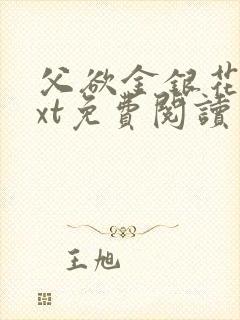 父欲金银花
xt免費閱讀
王旭